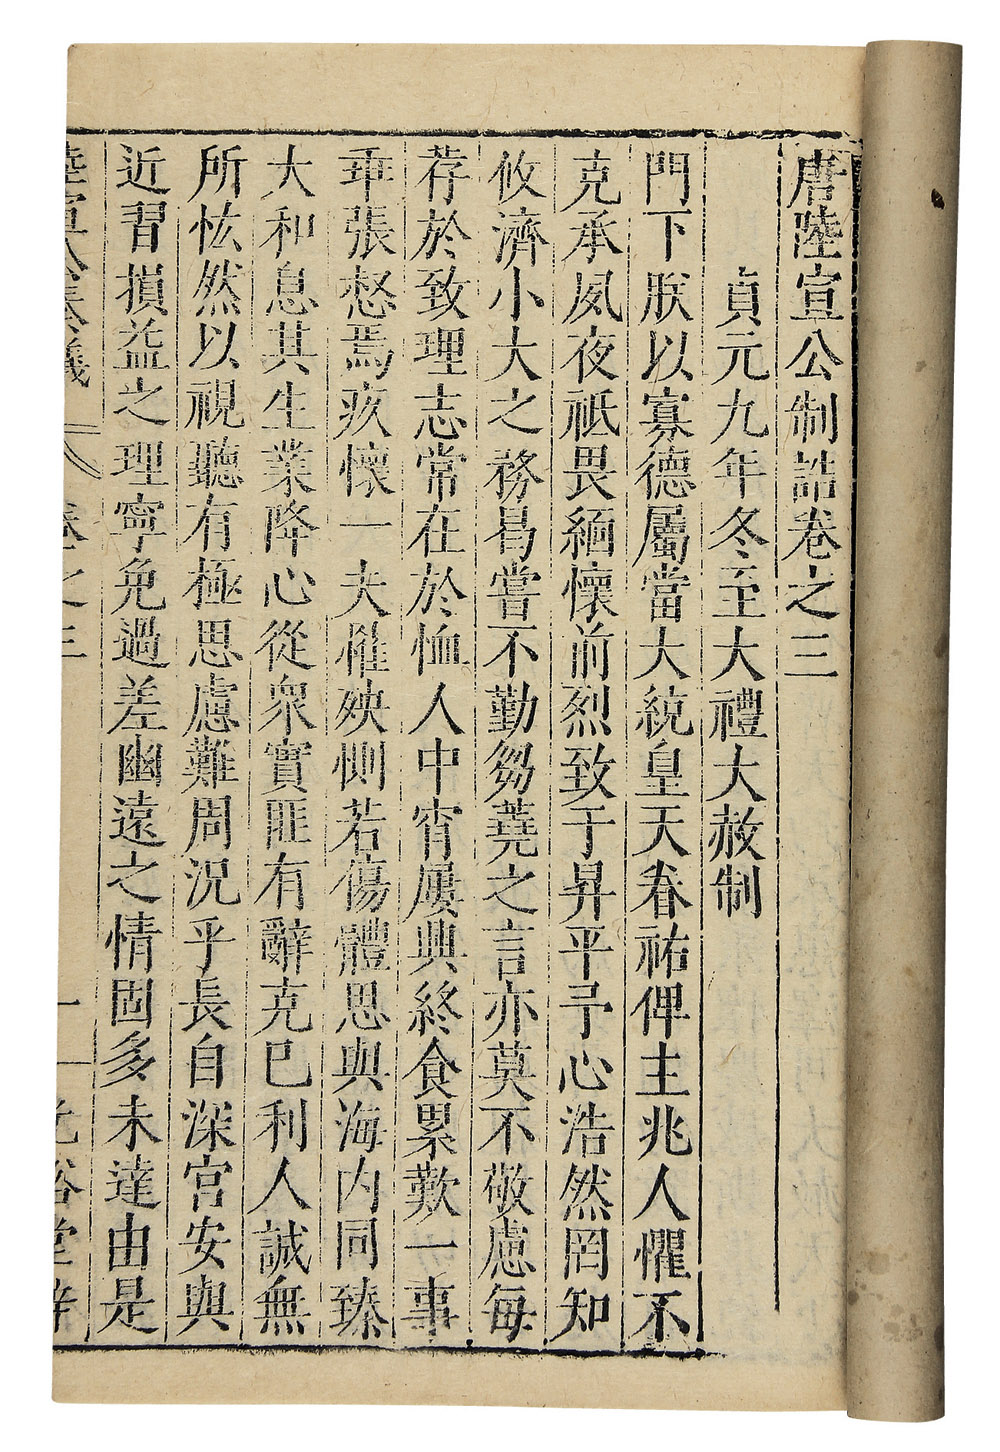 唐陸宣公制誥卷之三
貞元九年冬至大禮大赦制
門下朕以寡德屬當大統皇天眷祐俾主兆人懼不
克承夙夜祗畏緬懷前烈致于昇平予心浩然罔知
攸濟小大之務曷嘗不勤芻蕘之言亦莫不敬慮每
荐於致理志常在於恤人中宵屢興終食累歎一事
乖張惄焉疚懷一夫罹殃惻若傷體思與海内同臻
大和息其生業降心從衆實匪有辭克已利人誠無
所恡然以視聽有極思慮難周况乎長自深宮安與
近習損益之理寧免過差幽遠之情固多未達由是
陸宣公集奏議 卷之三 一 光裕堂梓